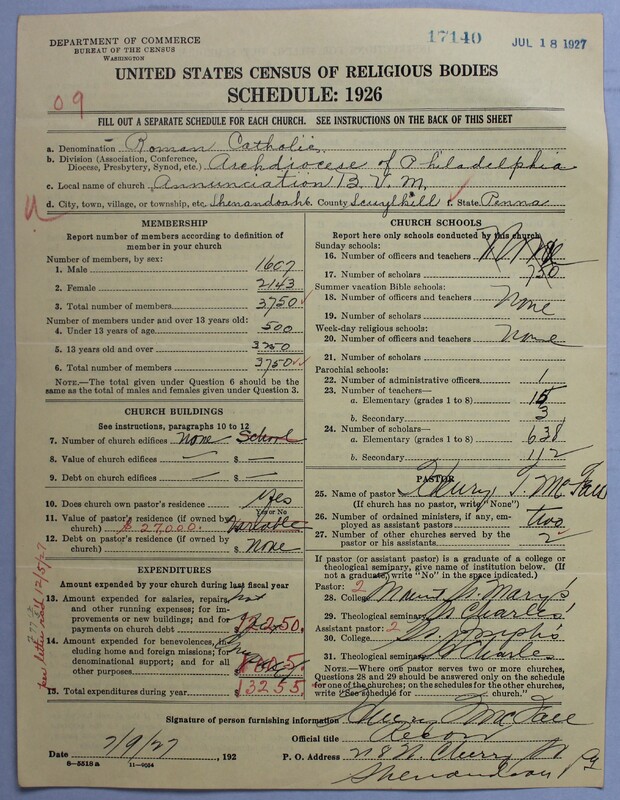 DEPARTMENT OF COMMERCE
BUREAU OF THE CENSUS
WASHINGTON
17140
JUL 18 1927
UNITED STATES CENSUS OF RELIGIOUS BODIES
SCHEDULE: 1926
09
FILL OUT A SEPARATE SCHEDULE FOR EACH CHURCH. SEE INSTRUCTIONS ON THE BACK OF THIS SHEET
a. Denomination Roman Catholic
b. Division (Association, Conference, Diocese, Presbytery, Synod, etc.) Archdiocese of Philadelphia
c. Local name of church Annunciation B.V.M.
d. City, town, village, or township, etc. Shenandoah e. County Scuylkill f. State Penna
MEMBERSHIP
Report number of members according to definition of
member in your church
Number of members, by sex:
1. Male 1607
2. Female 2143
3. Total number of members 3750
Number of members under and over 13 years old:
4. Under 13 years of age 500
5. 13 years old and over 3250
6. Total number of members 3750
NOTE.—The total given under Question 6 should be
the same as the total of males and females given under Question 3.
CHURCH BUILDINGS
See instructions, paragraphs 10 to 12
7. Number of church edifices None School
8. Value of church edifices — $ —
9. Debt on church edifices — $ —
10. Does church own pastor's residence Yes
Yes or No
11. Value of pastor's residence (if owned by church) $ 27,000. Available
12. Debt on pastor's residence (if owned by church) $ None
EXPENDITURES
Amount expended by your church during last fiscal year
13. Amount expended for salaries, repairs,
and other running expenses; for im-
provements or new buildings; and for
payments on church debt 12250.
14. Amount expended for benevolences, in-
cluding home and foreign missions; for
denominational support; and for all
other purposes 1005.
15. Total expenditures during year 13255
per letter recd 12/5/27
CHURCH SCHOOLS
Report here only schools conducted by this church
Sunday schools:
16. Number of officers and teachers None
17. Number of scholars 750
Summer vacation Bible schools:
18. Number of officers and teachers None
19. Number of scholars
Week-day religious schools:
20. Number of officers and teachers None
21. Number of scholars
Parochial schools:
22. Number of administrative officers 1
23. Number of teachers—
a. Elementary (grades 1 to 8) 15
b. Secondary 3
24. Number of scholars—
a. Elementary (grades 1 to 8) 638
b. Secondary 112
PASTOR
25. Name of pastor
(If church has no pastor, write "None")
26. Number of ordained ministers, if any, em-
ployed as assistant pastors two
27. Number of other churches served by the
pastor or his assistants 2
If pastor (or assistant pastor) is a graduate of a college or
theological seminary, give name of institution below. (If
not a graduate, write "No" in the space indicated.)
Pastor: 2
28. College Mount St. Mary's
29. Theological seminary St Charles'
Assistant pastor: 2
30. College St. Joseph's
31. Theological seminary St Charles
NOTE.—Where one pastor serves two or more churches,
Questions 28 and 29 should be answered only on the schedule
for one of the churches; on the schedules for the other churches,
write "See schedule for church."
Signature of person furnishing information
Official title Rector
Date 7/9/27, 192
P. O. Address 218 W. Cherry St
8-5518 a 11-9054
Shenandoah Pa